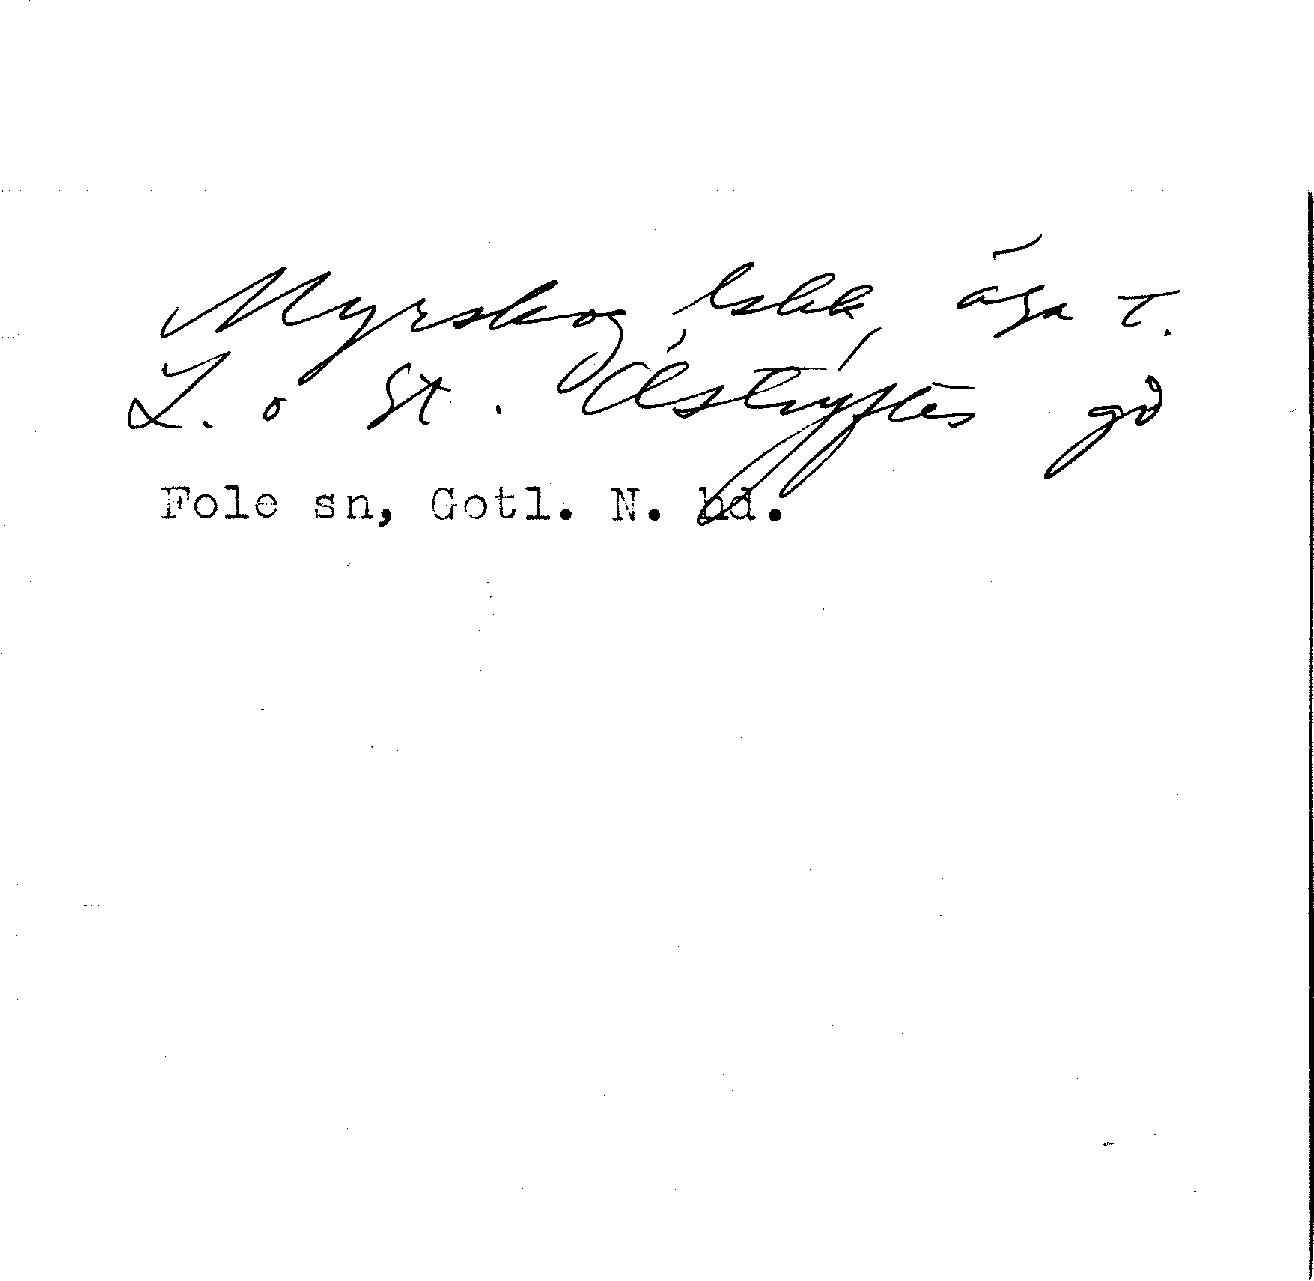 Myrskog, lsbk, äga t.
L. o St. Åstryftes gd
Fole sn, Gotl. N. hd.